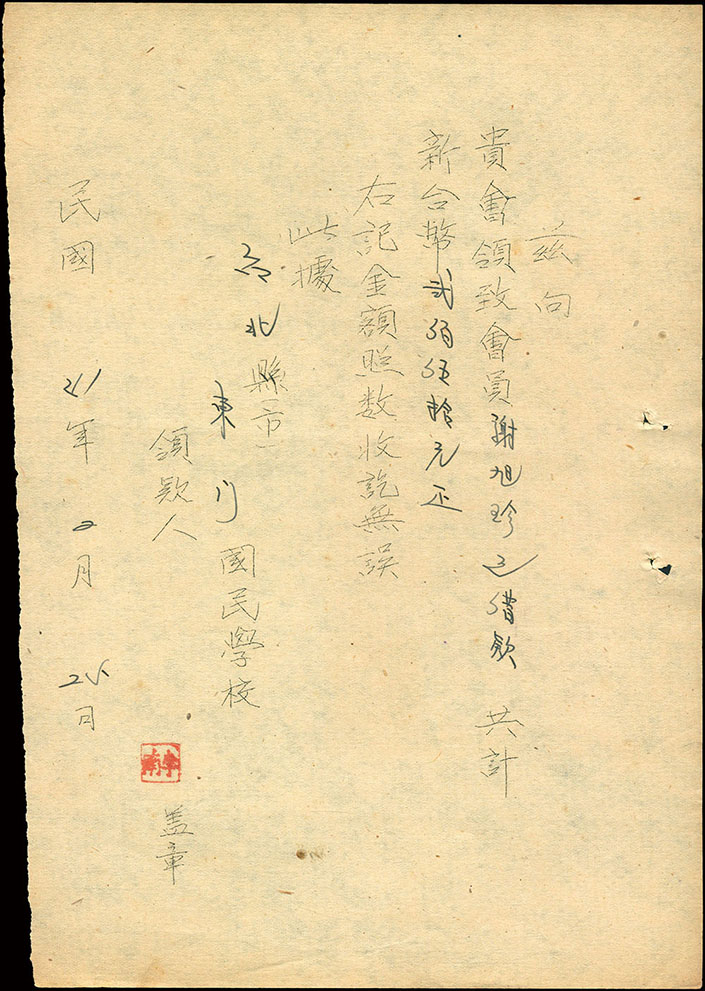 茲向
貴會領致會員謝旭珍之借款 共計
新台幣貳佰伍拾元正
右記金額照数收訖無誤
此據
台北縣市
東門國民學校
領款人
盖章
民國 41年 2月 25日